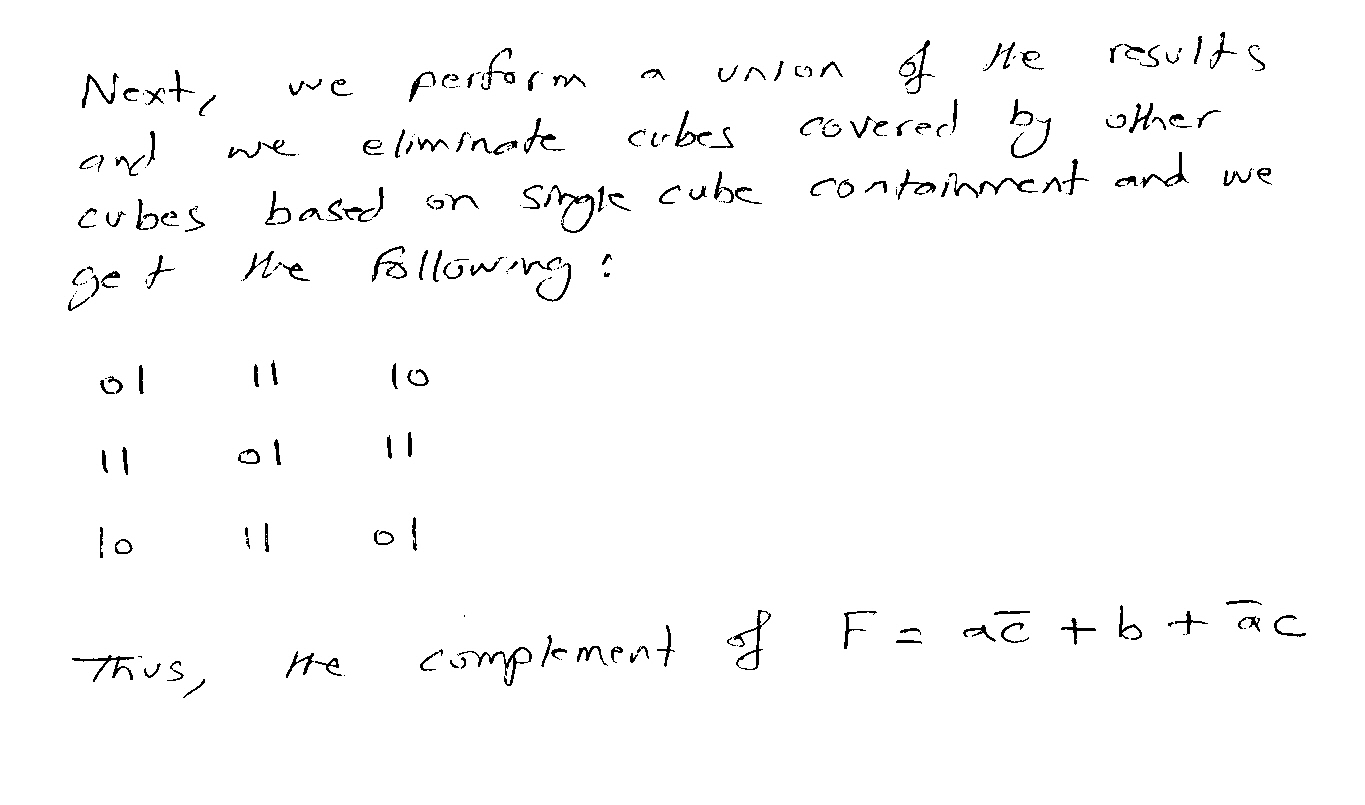 Next, we perform a union of the results
and we eliminate cubes covered by other
cubes based on single cube containment and we
get the following:
01 11 10
11 01 11
10 11 01
Thus, the complement of F = ac̅ + b + a̅c